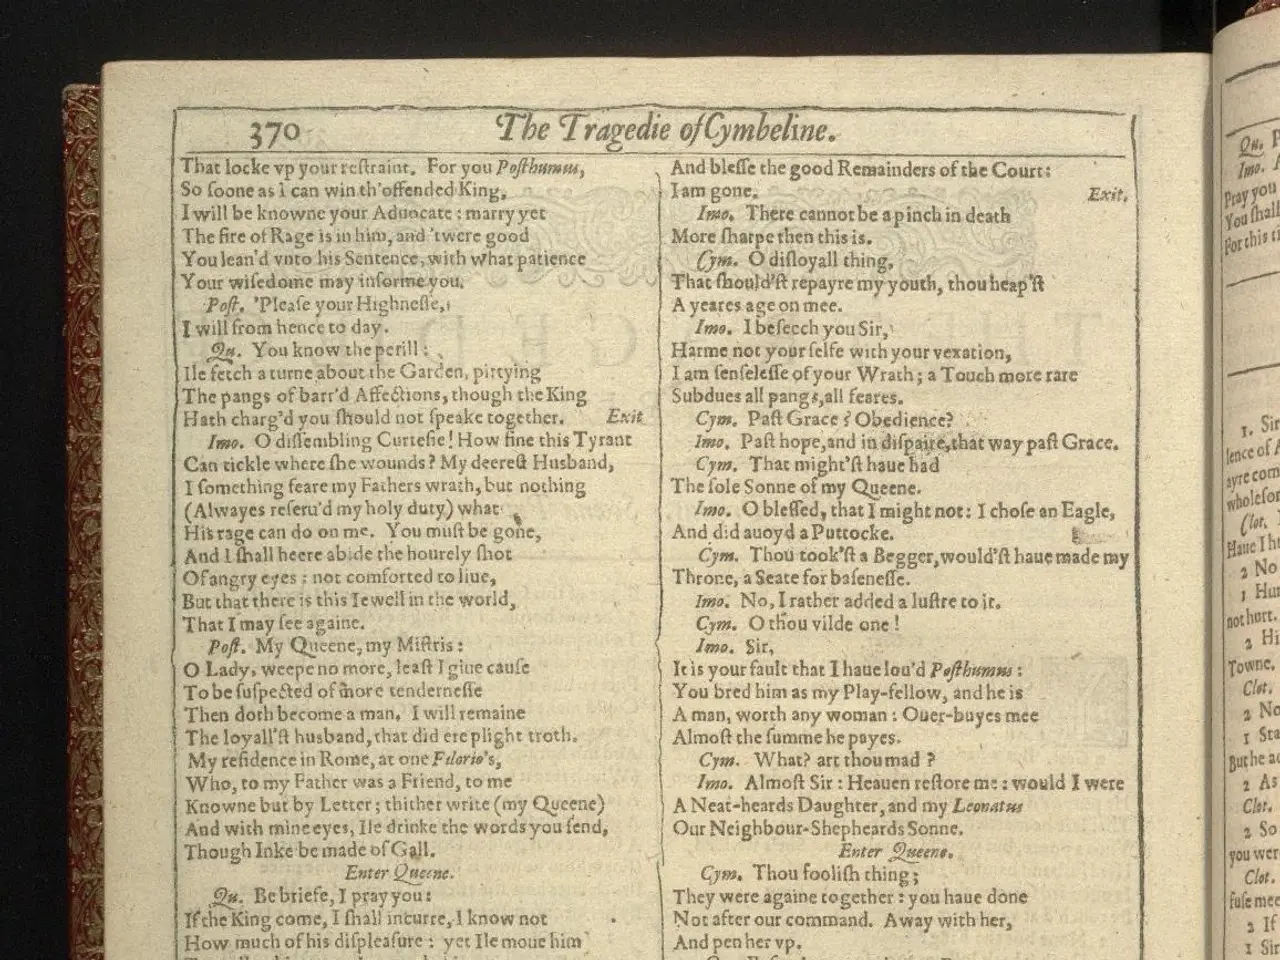 370
The Tragedie of Cymbeline.
That locke vp your reſtraint. For you Poſthumus,
So ſoone as I can win th'offended King,
I will be knowne your Aduocate : marry yet
The fire of Rage is in him, and 'twere good
You lean'd vnto his Sentence, with what patience
Your wiſedome may informe you.
Poſt. 'Pleaſe your Highneſſe,
I will from hence to day.
Qu. You know the perill :
Ile fetch a turne about the Garden, pittying
The pangs of barr'd Affections, though the King
Hath charg'd you ſhould not ſpeake together. Exit
Imo. O diſſembling Curteſie! How fine this Tyrant
Can tickle where ſhe wounds? My deereſt Husband,
I ſomething feare my Fathers wrath, but nothing
(Alwayes reſeru'd my holy duty) what
His rage can do on me. You muſt be gone,
And I ſhall heere abide the hourely ſhot
Of angry eyes : not comforted to liue,
But that there is this Iewell in the world,
That I may ſee againe.
Poſt. My Queene, my Miſtris :
O Lady, weepe no more, leaſt I giue cauſe
To be ſuſpected of more tenderneſſe
Then doth become a man. I will remaine
The loyall'ſt husband, that did ere plight troth.
My reſidence in Rome, at one Filorio's,
Who, to my Father was a Friend, to me
Knowne but by Letter; thither write (my Queene)
And with mine eyes, Ile drinke the words you ſend,
Though Inke be made of Gall.
Enter Queene.
Qu. Be briefe, I pray you :
If the King come, I ſhall incurre, I know not
How much of his diſpleaſure : yet Ile moue him
And bleſſe the good Remainders of the Court :
I am gone. Exit.
Imo. There cannot be a pinch in death
More ſharpe then this is.
Cym. O diſloyall thing,
That ſhould'ſt repayre my youth, thou heap'ſt
A yeares age on mee.
Imo. I beſeech you Sir,
Harme not your ſelfe with your vexation,
I am ſenſeleſſe of your Wrath; a Touch more rare
Subdues all pangs, all feares.
Cym. Paſt Grace? Obedience?
Imo. Paſt hope, and in diſpaire, that way paſt Grace.
Cym. That might'ſt haue had
The ſole Sonne of my Queene.
Imo. O bleſſed, that I might not : I choſe an Eagle,
And did auoyd a Puttocke.
Cym. Thou took'ſt a Begger, would'ſt haue made my
Throne, a Seate for baſeneſſe.
Imo. No, I rather added a luſtre to it.
Cym. O thou vilde one!
Imo. Sir,
It is your fault that I haue lou'd Poſthumus :
You bred him as my Play-fellow, and he is
A man, worth any woman : Ouer-buyes mee
Almoſt the ſumme he payes.
Cym. What? art thou mad ?
Imo. Almoſt Sir : Heauen reſtore me : would I were
A Neat-heards Daughter, and my Leonatus
Our Neighbour-Shepheards Sonne.
Enter Queene.
Cym. Thou fooliſh thing;
They were againe together : you haue done
Not after our command. Away with her,
And pen her vp.
Qu.
Imo.
Pray you
You ſhall
For this
1. Sir
lence of
ayre com
wholeſom
Clot.
Haue I
2 No
1 Hur
not hurt.
2 Hi
Towne.
Clot.
2 No
1 Sta
But he
2 As
Clot.
2 So
you wer
Clot.
fuſe mee
2 If
1 Sir